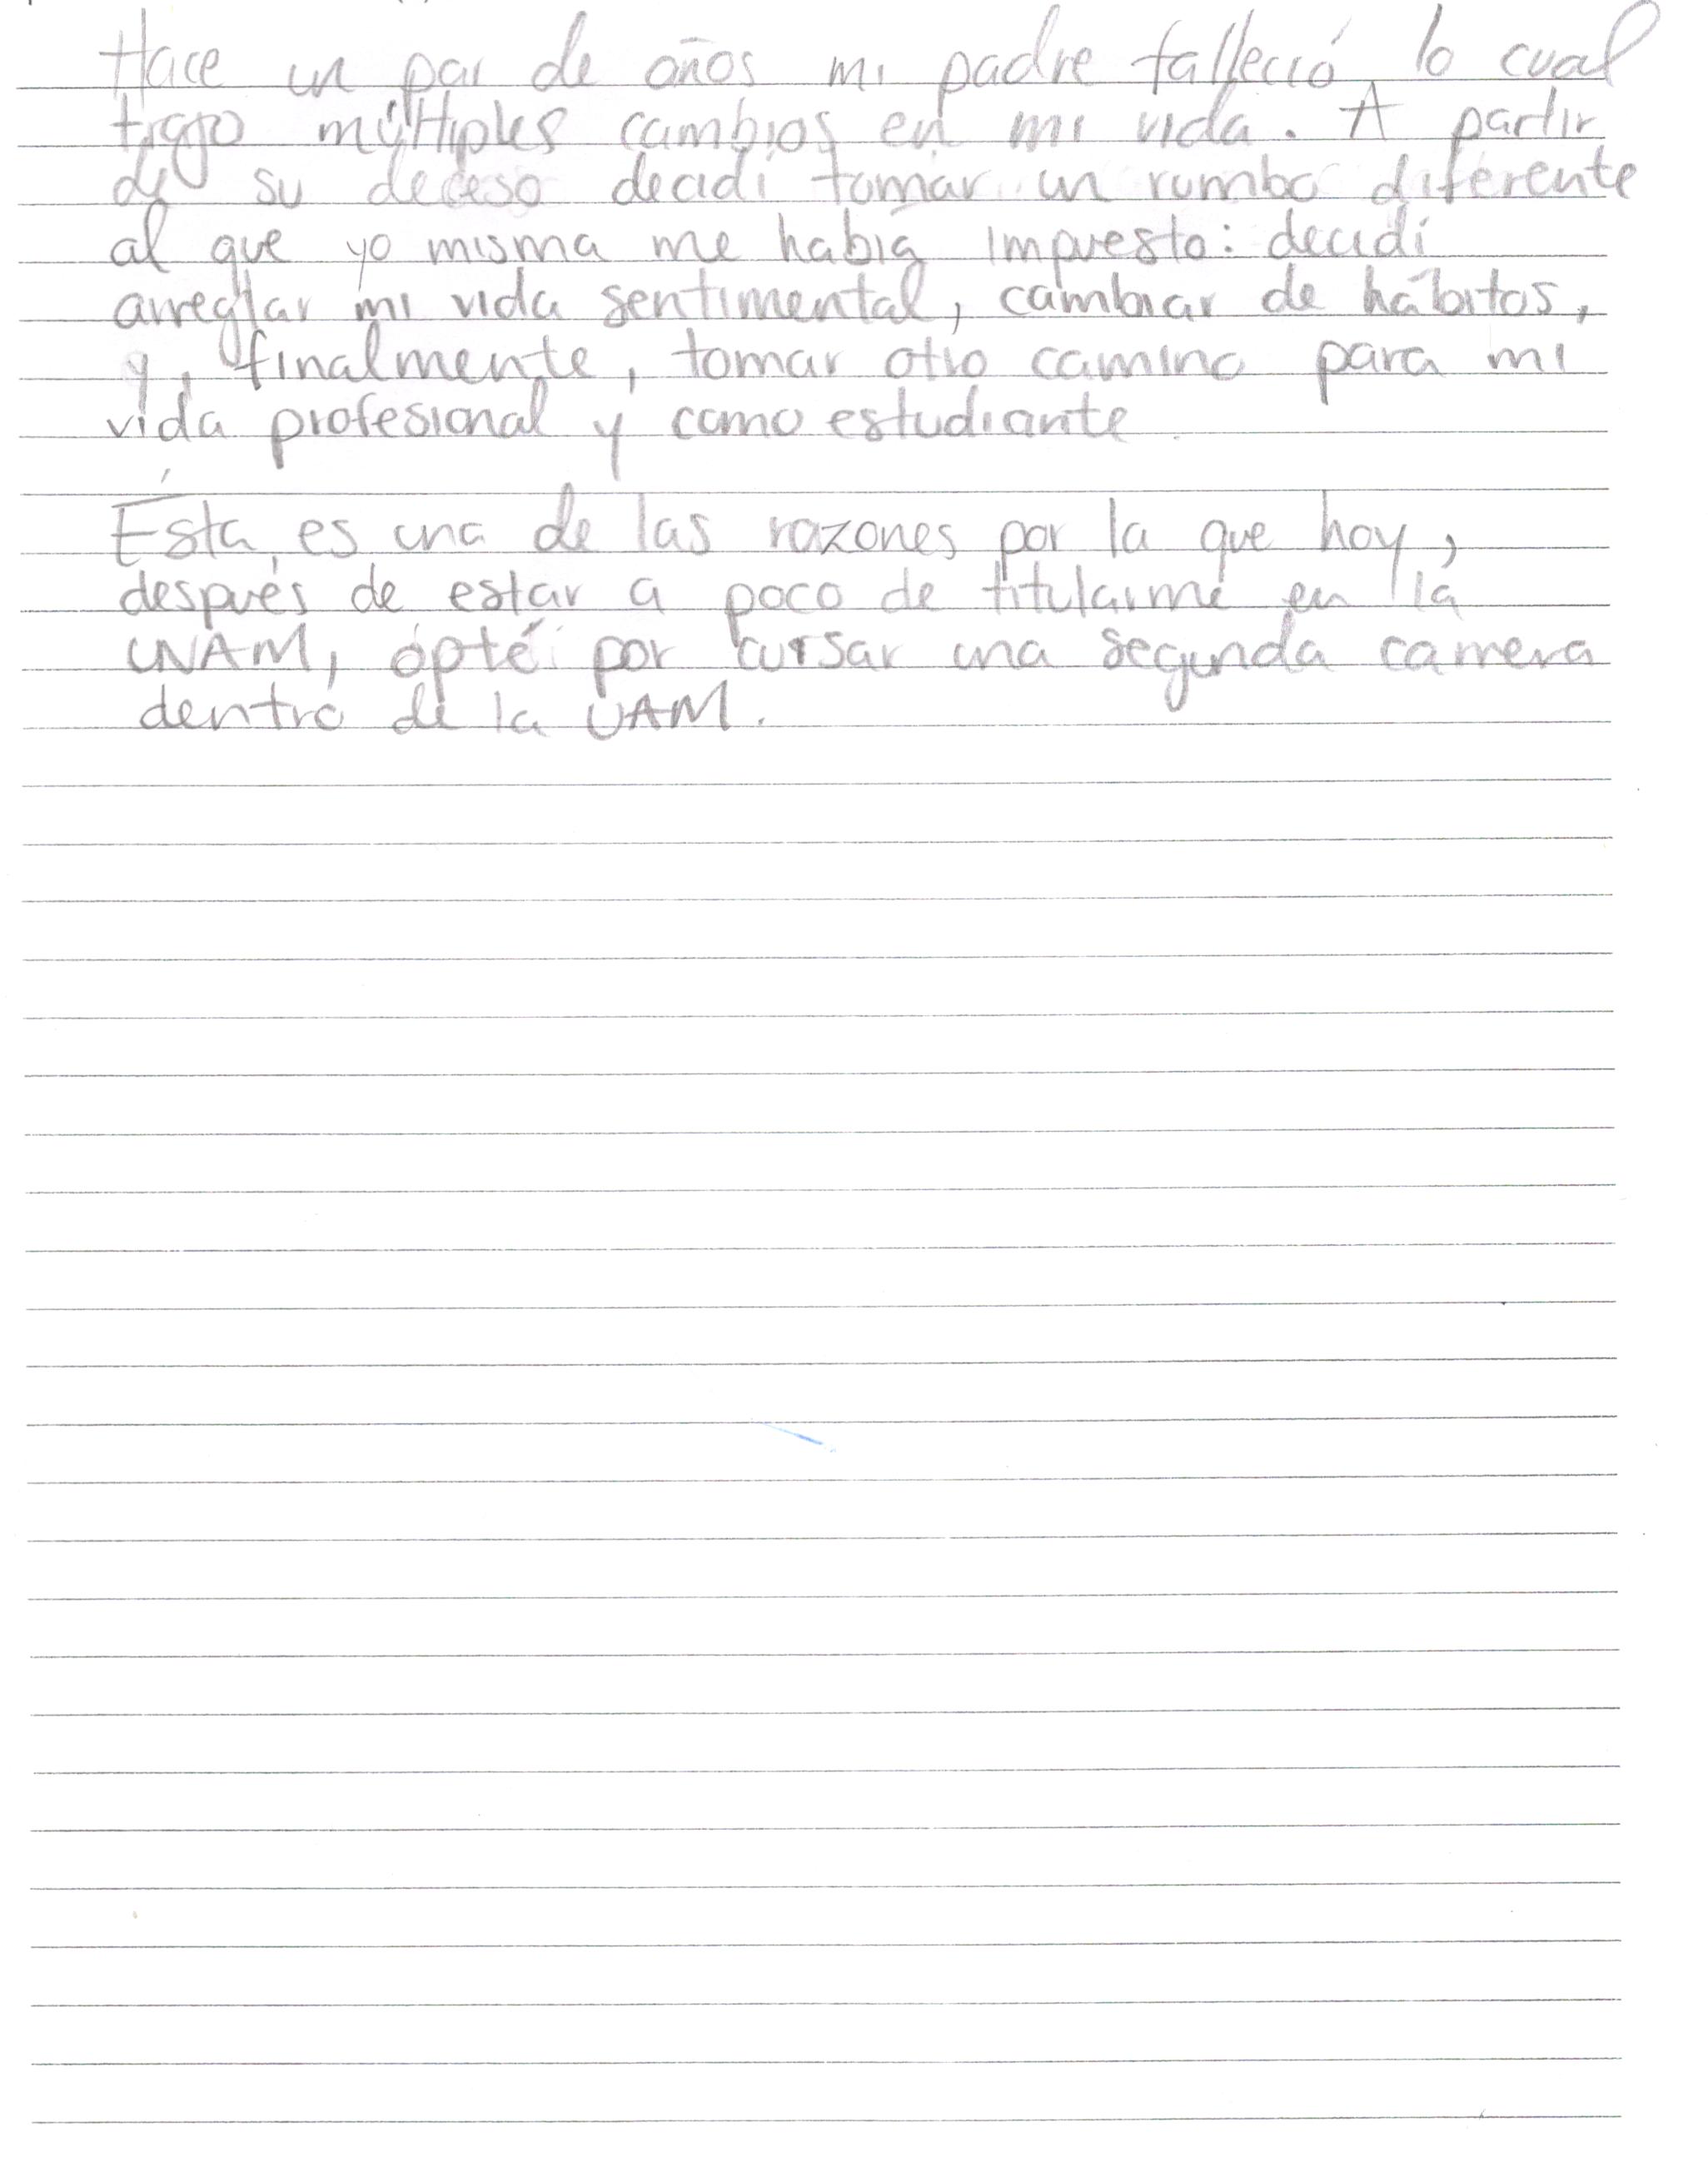 Hace un par de años mi padre falleció, lo cual
trajo múltiples cambios en mi vida. A partir
de su deceso decidí tomar un rumbo diferente
al que yo misma me había impuesto: decidí
arreglar mi vida sentimental, cambiar de hábitos,
y, finalmente, tomar otro camino para mi
vida profesional y como estudiante.
Ésta es una de las razones por la que hoy,
después de estar a poco de titularme en la
UNAM, opté por cursar una segunda carrera
dentro de la UAM.